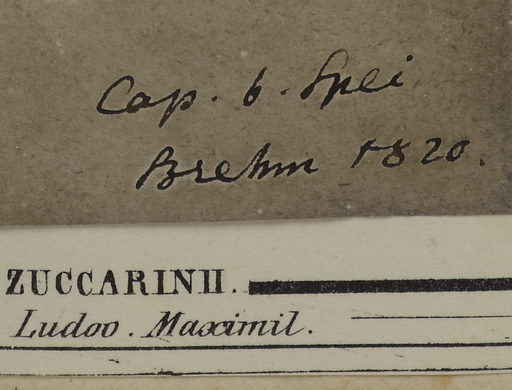 Cap. b. Spei
Brehm 1820.
ZUCCARINII.
Ludov. Maximil.